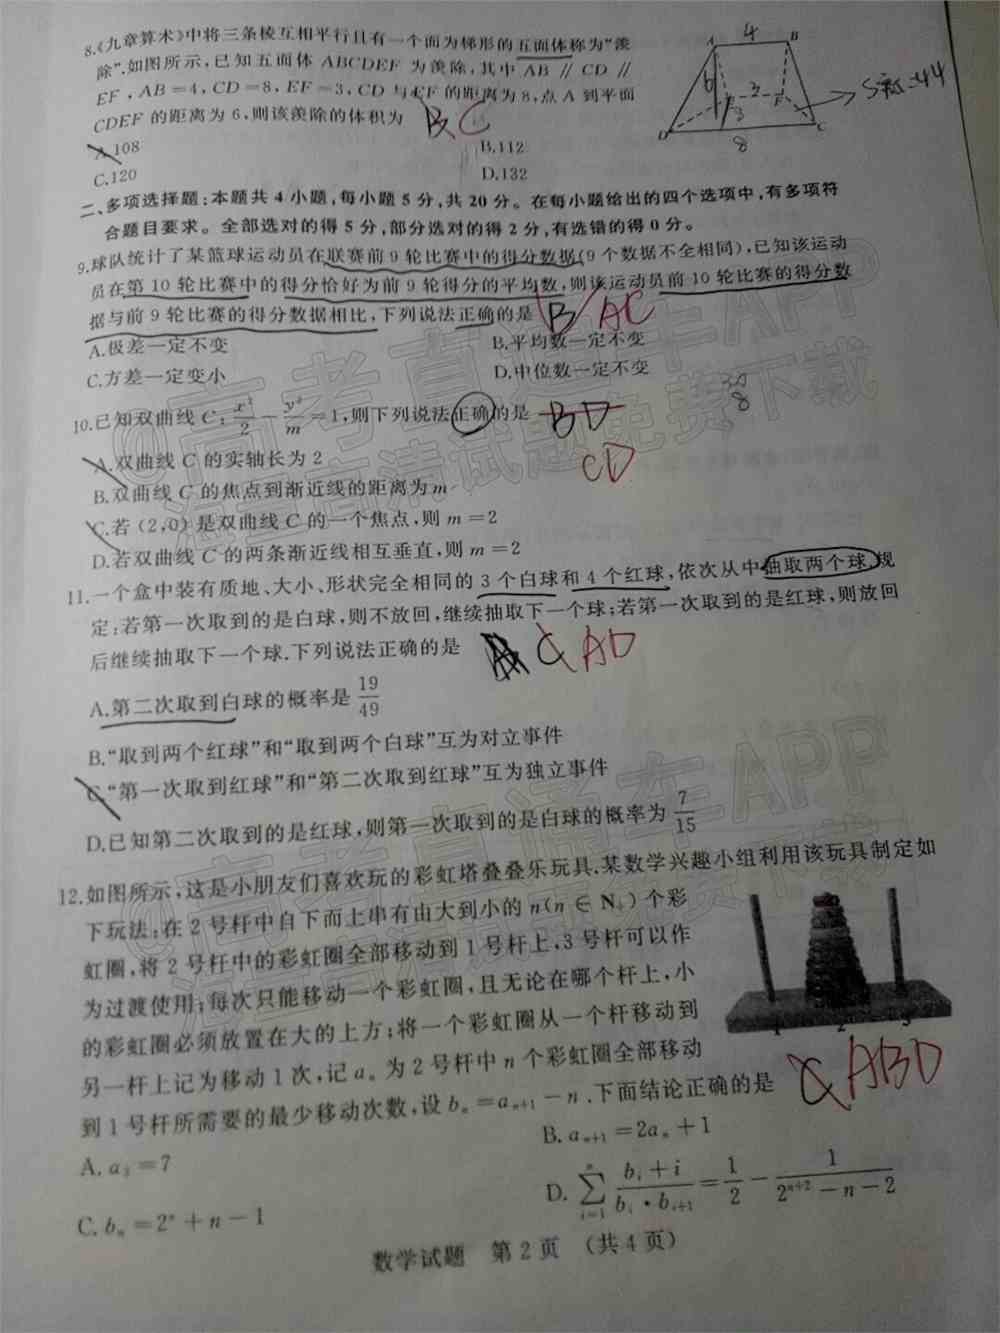 8.《九章算术》中将三条棱互相平行且有一个面为梯形的五面体称为“羡
除”.如图所示,已知五面体 ABCDEF 为羡除,其中 AB // CD //
EF,AB=4,CD=8,EF=3,CD 与 EF 的距离为 8,点 A 到平面
CDEF 的距离为 6,则该羡除的体积为 B C
A.108 B.112
C.120 D.132
4
A B
6
E 3 F
3
D 8 C
二、多项选择题:本题共 4 小题,每小题 5 分,共 20 分。在每小题给出的四个选项中,有多项符
合题目要求。全部选对的得 5 分,部分选对的得 2 分,有选错的得 0 分。
9.球队统计了某篮球运动员在联赛前 9 轮比赛中的得分数据(9 个数据不全相同),已知该运动
员在第 10 轮比赛中的得分恰好为前 9 轮得分的平均数,则该运动员前 10 轮比赛的得分数
据与前 9 轮比赛的得分数据相比,下列说法正确的是 B AC
A.极差一定不变 B.平均数一定不变
C.方差一定变小 D.中位数一定不变
10.已知双曲线 C:x²/2 − y²/m =1,则下列说法正确的是 BD
CD
A.双曲线 C 的实轴长为 2
B.双曲线 C 的焦点到渐近线的距离为 m
C.若 (2,0) 是双曲线 C 的一个焦点,则 m=2
D.若双曲线 C 的两条渐近线相互垂直,则 m=2
11.一个盒中装有质地、大小、形状完全相同的 3 个白球和 4 个红球,依次从中抽取两个球.规
定:若第一次取到的是白球,则不放回,继续抽取下一个球;若第一次取到的是红球,则放回
后继续抽取下一个球.下列说法正确的是 C AD
A.第二次取到白球的概率是 19/49
B.“取到两个红球”和“取到两个白球”互为对立事件
C.“第一次取到红球”和“第二次取到红球”互为独立事件
D.已知第二次取到的是红球,则第一次取到的是白球的概率为 7/15
12.如图所示,这是小朋友们喜欢玩的彩虹塔叠叠乐玩具.某数学兴趣小组利用该玩具制定如
下玩法:在 2 号杆中自下而上串有由大到小的 n(n∈N₊) 个彩
虹圈,将 2 号杆中的彩虹圈全部移动到 1 号杆上,3 号杆可以作
为过渡使用;每次只能移动一个彩虹圈,且无论在哪个杆上,小
的彩虹圈必须放置在大的上方;将一个彩虹圈从一个杆移动到
另一杆上记为移动 1 次,记 aₙ 为 2 号杆中 n 个彩虹圈全部移动
到 1 号杆所需要的最少移动次数,设 bₙ=aₙ₊₁−n.下面结论正确的是
1 2 3
C ABD
A. a₃=7 B. aₙ₊₁=2aₙ+1
C. bₙ=2ⁿ+n−1 D. ∑ⁿᵢ₌₁ (bᵢ+i)/(bᵢ·bᵢ₊₁) = 1/2 − 1/(2ⁿ⁺²−n−2)
数学试题 第 2 页 (共 4 页)
@高考直通车APP
海量高清试题免费下载
@高考直通车APP